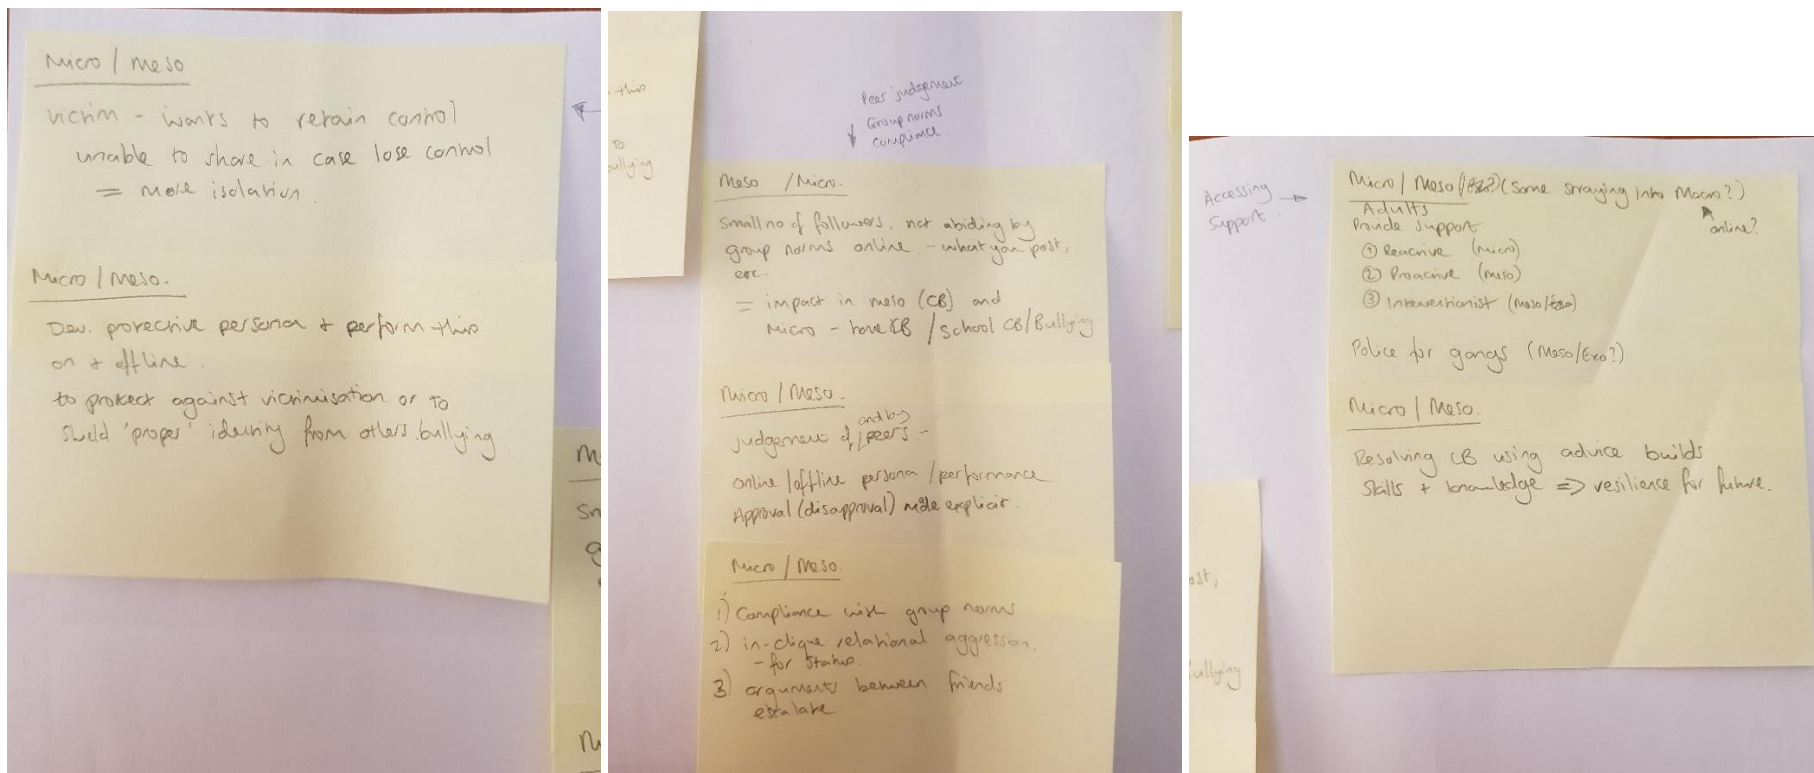 Micro / Meso
Victim - wants to retain control
unable to share in case lose control
= more isolation.
Micro / Meso.
Dev. protective persona + perform this
on + offline.
to protect against victimisation or to
shield 'proper' identity from others. bullying
M
Sn
g
M
this
to
bullying
Peer judgement
Group norms
compliance
Meso / Micro.
Small no of followers, not abiding by
group norms online. - what you post,
etc.
= impact in meso (CB) and
Micro - home CB / School CB / Bullying
Micro / Meso.
and by
judgement of peers -
online / offline persona / performance
Approval (disapproval) made explicit.
Micro / Meso.
1) Compliance with group norms
2) in-clique relational aggression.
- for status.
3) arguments between friends
escalate
Accessing
Support.
Micro / Meso (/Exo?) (Some straying into Macro?)
online?
Adults
Provide support
① Reactive (micro)
② Proactive (meso)
③ Interventionist (meso/Exo)
Police for gangs (Meso/Exo?)
Micro / Meso.
Resolving CB using advice builds
skills + knowledge => resilience for future.
ost,
ullying